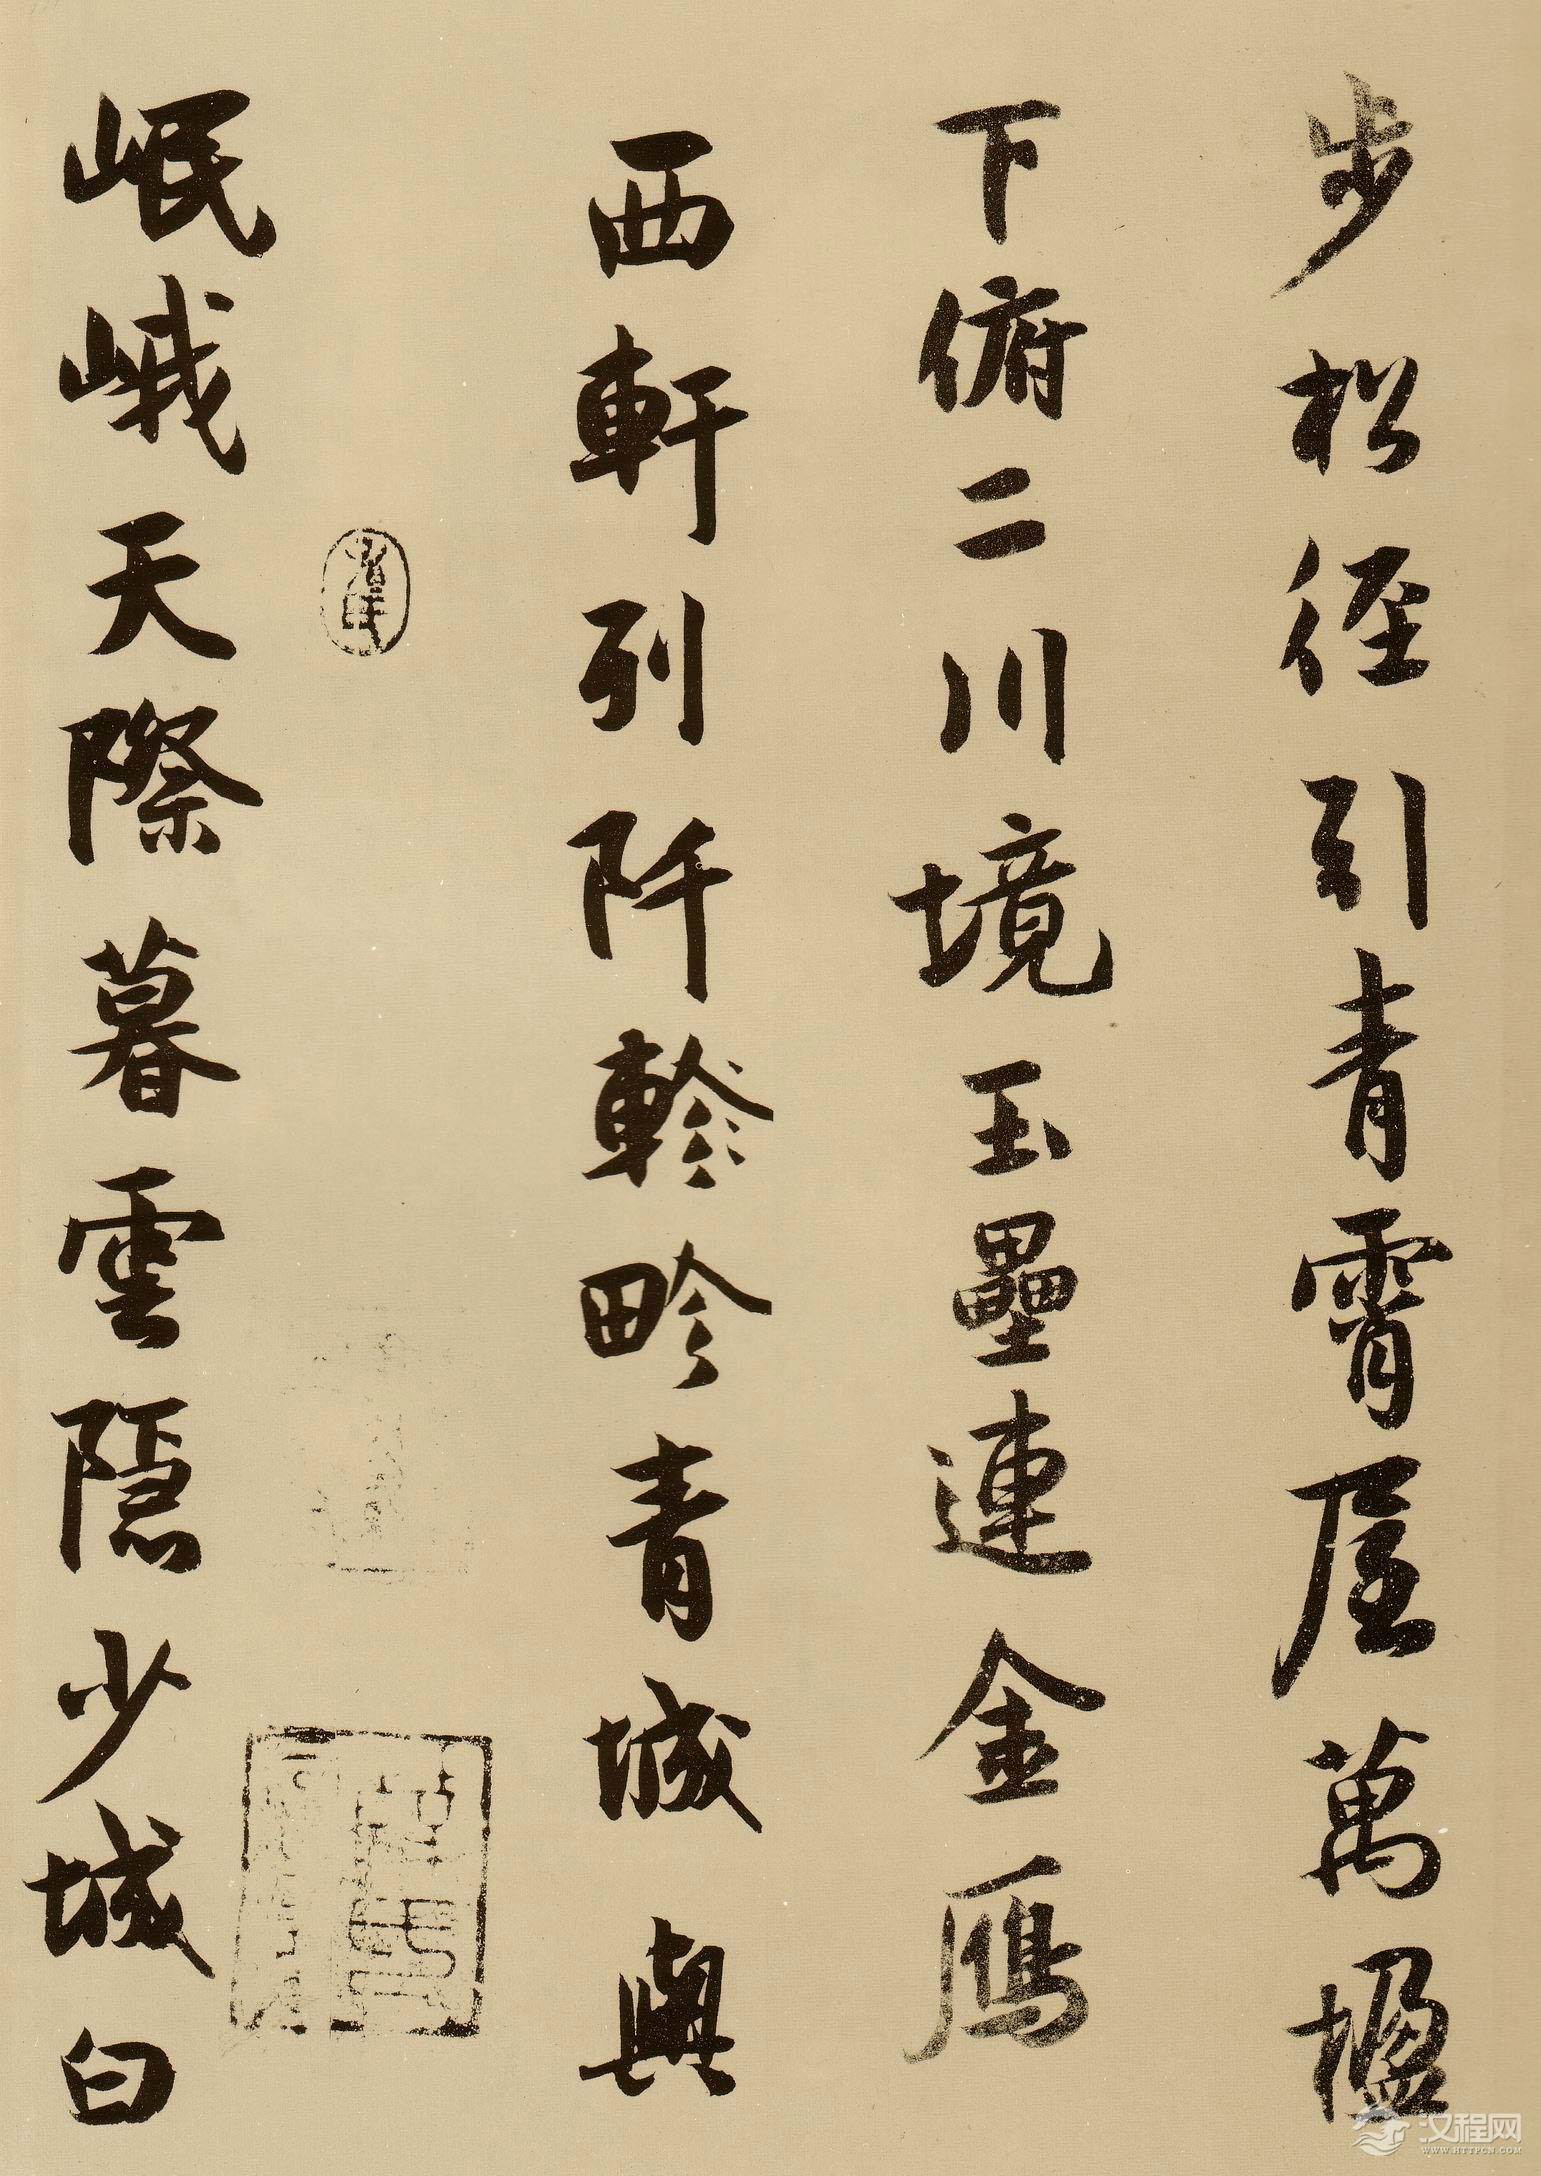 步松徑引青霄屋萬楹
下俯二川境玉壘連金鴈
西軒列阡軫畛青城與
岷峨天際暮雲隱少城白
汉程网
WWW.HTTPCN.COM